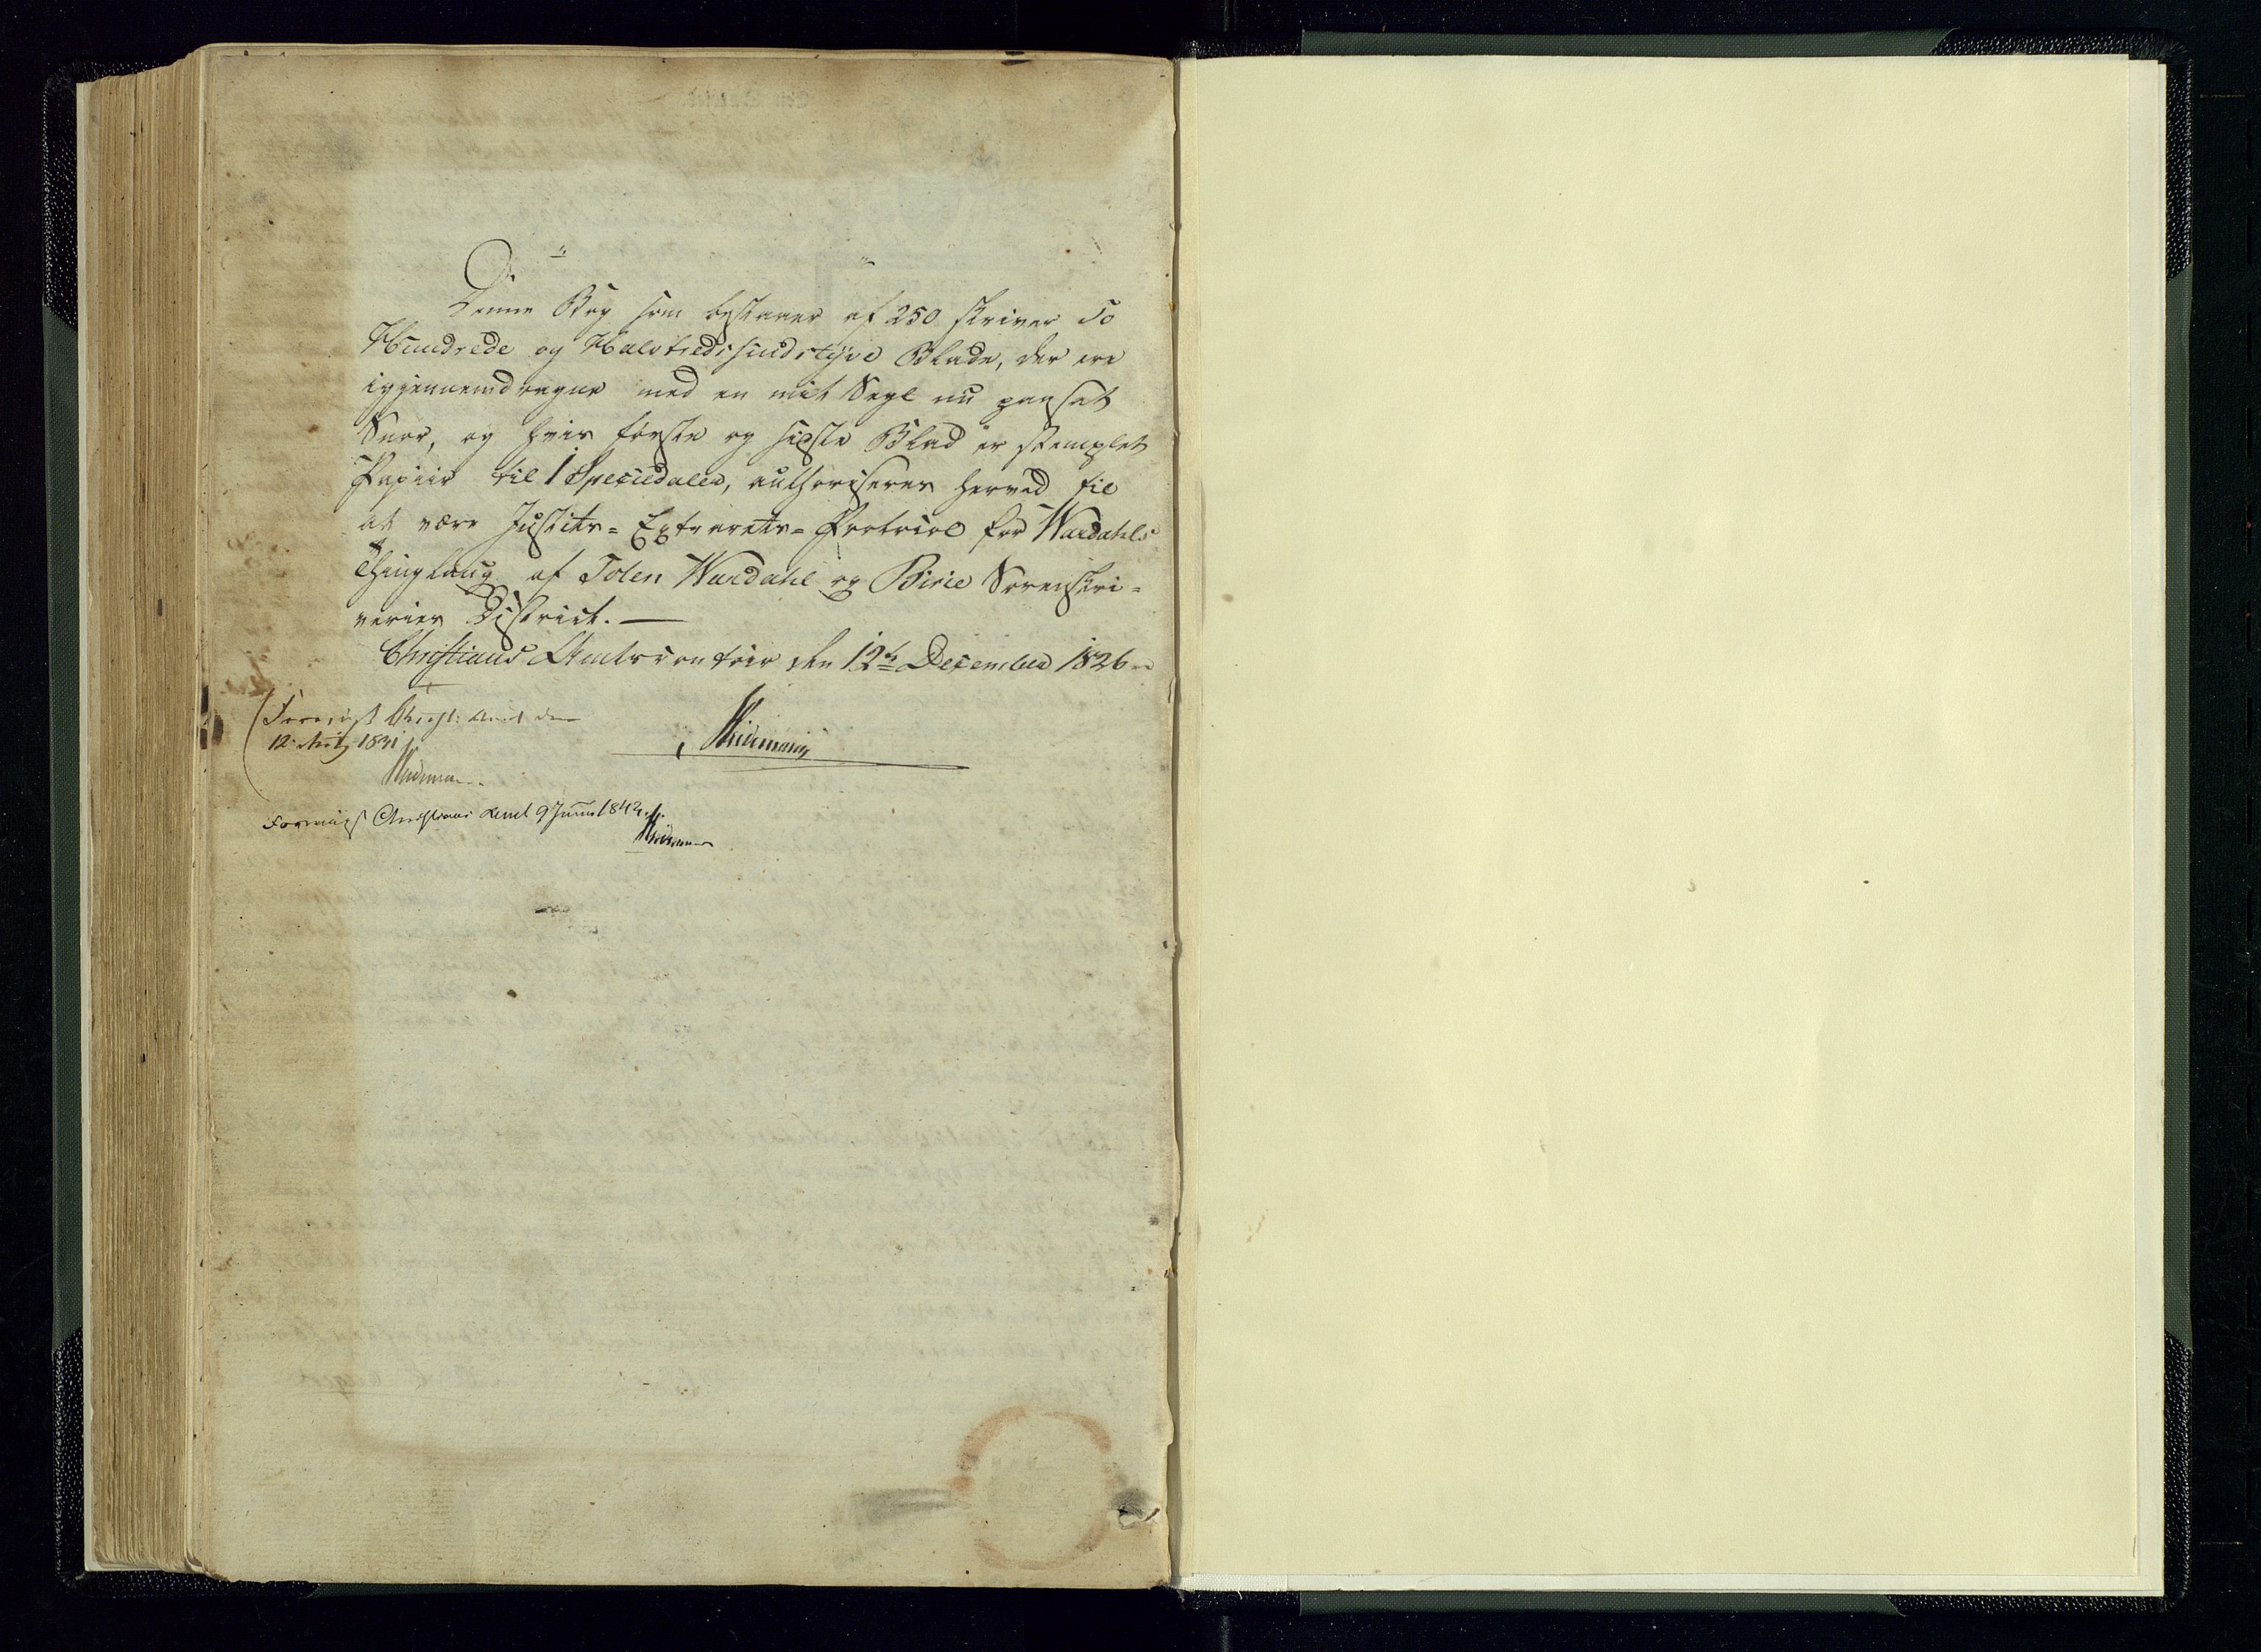 Denne Bog som bestaaer af 250 skriver To
Hundrede og Halvtredsindstyve Blade, der ere
igjennemdragne med en mit Segl nu paasat
Snor, og hvis første og sidste Blad er stemplet
Papiir til 1 Speciedaler, authoriseres herved til
at være Justits-Extrarets-Protocol for Wardahls
Thinglaug af Toten Wardahl og Birie Sorenskri-
veries District. —
Christians Amtscontoir den 12te December 1826
Foreviist Christ: Amt den
12 1831
Foreviist Christians Amt 9 Junii 1842.